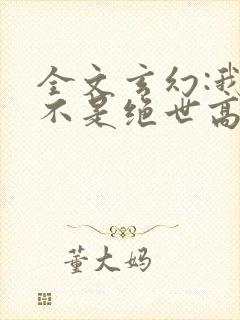 全文玄幻:我
不是绝世高
董大妈